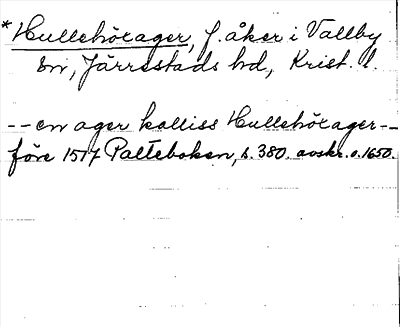 *Hullehörager, f. åker i Vallby
sn, Järrestads hd, Krist. l.
--en ager kalliss Hullehörager--
före 1517 Palteboken, s. 380. avskr. o. 1650.